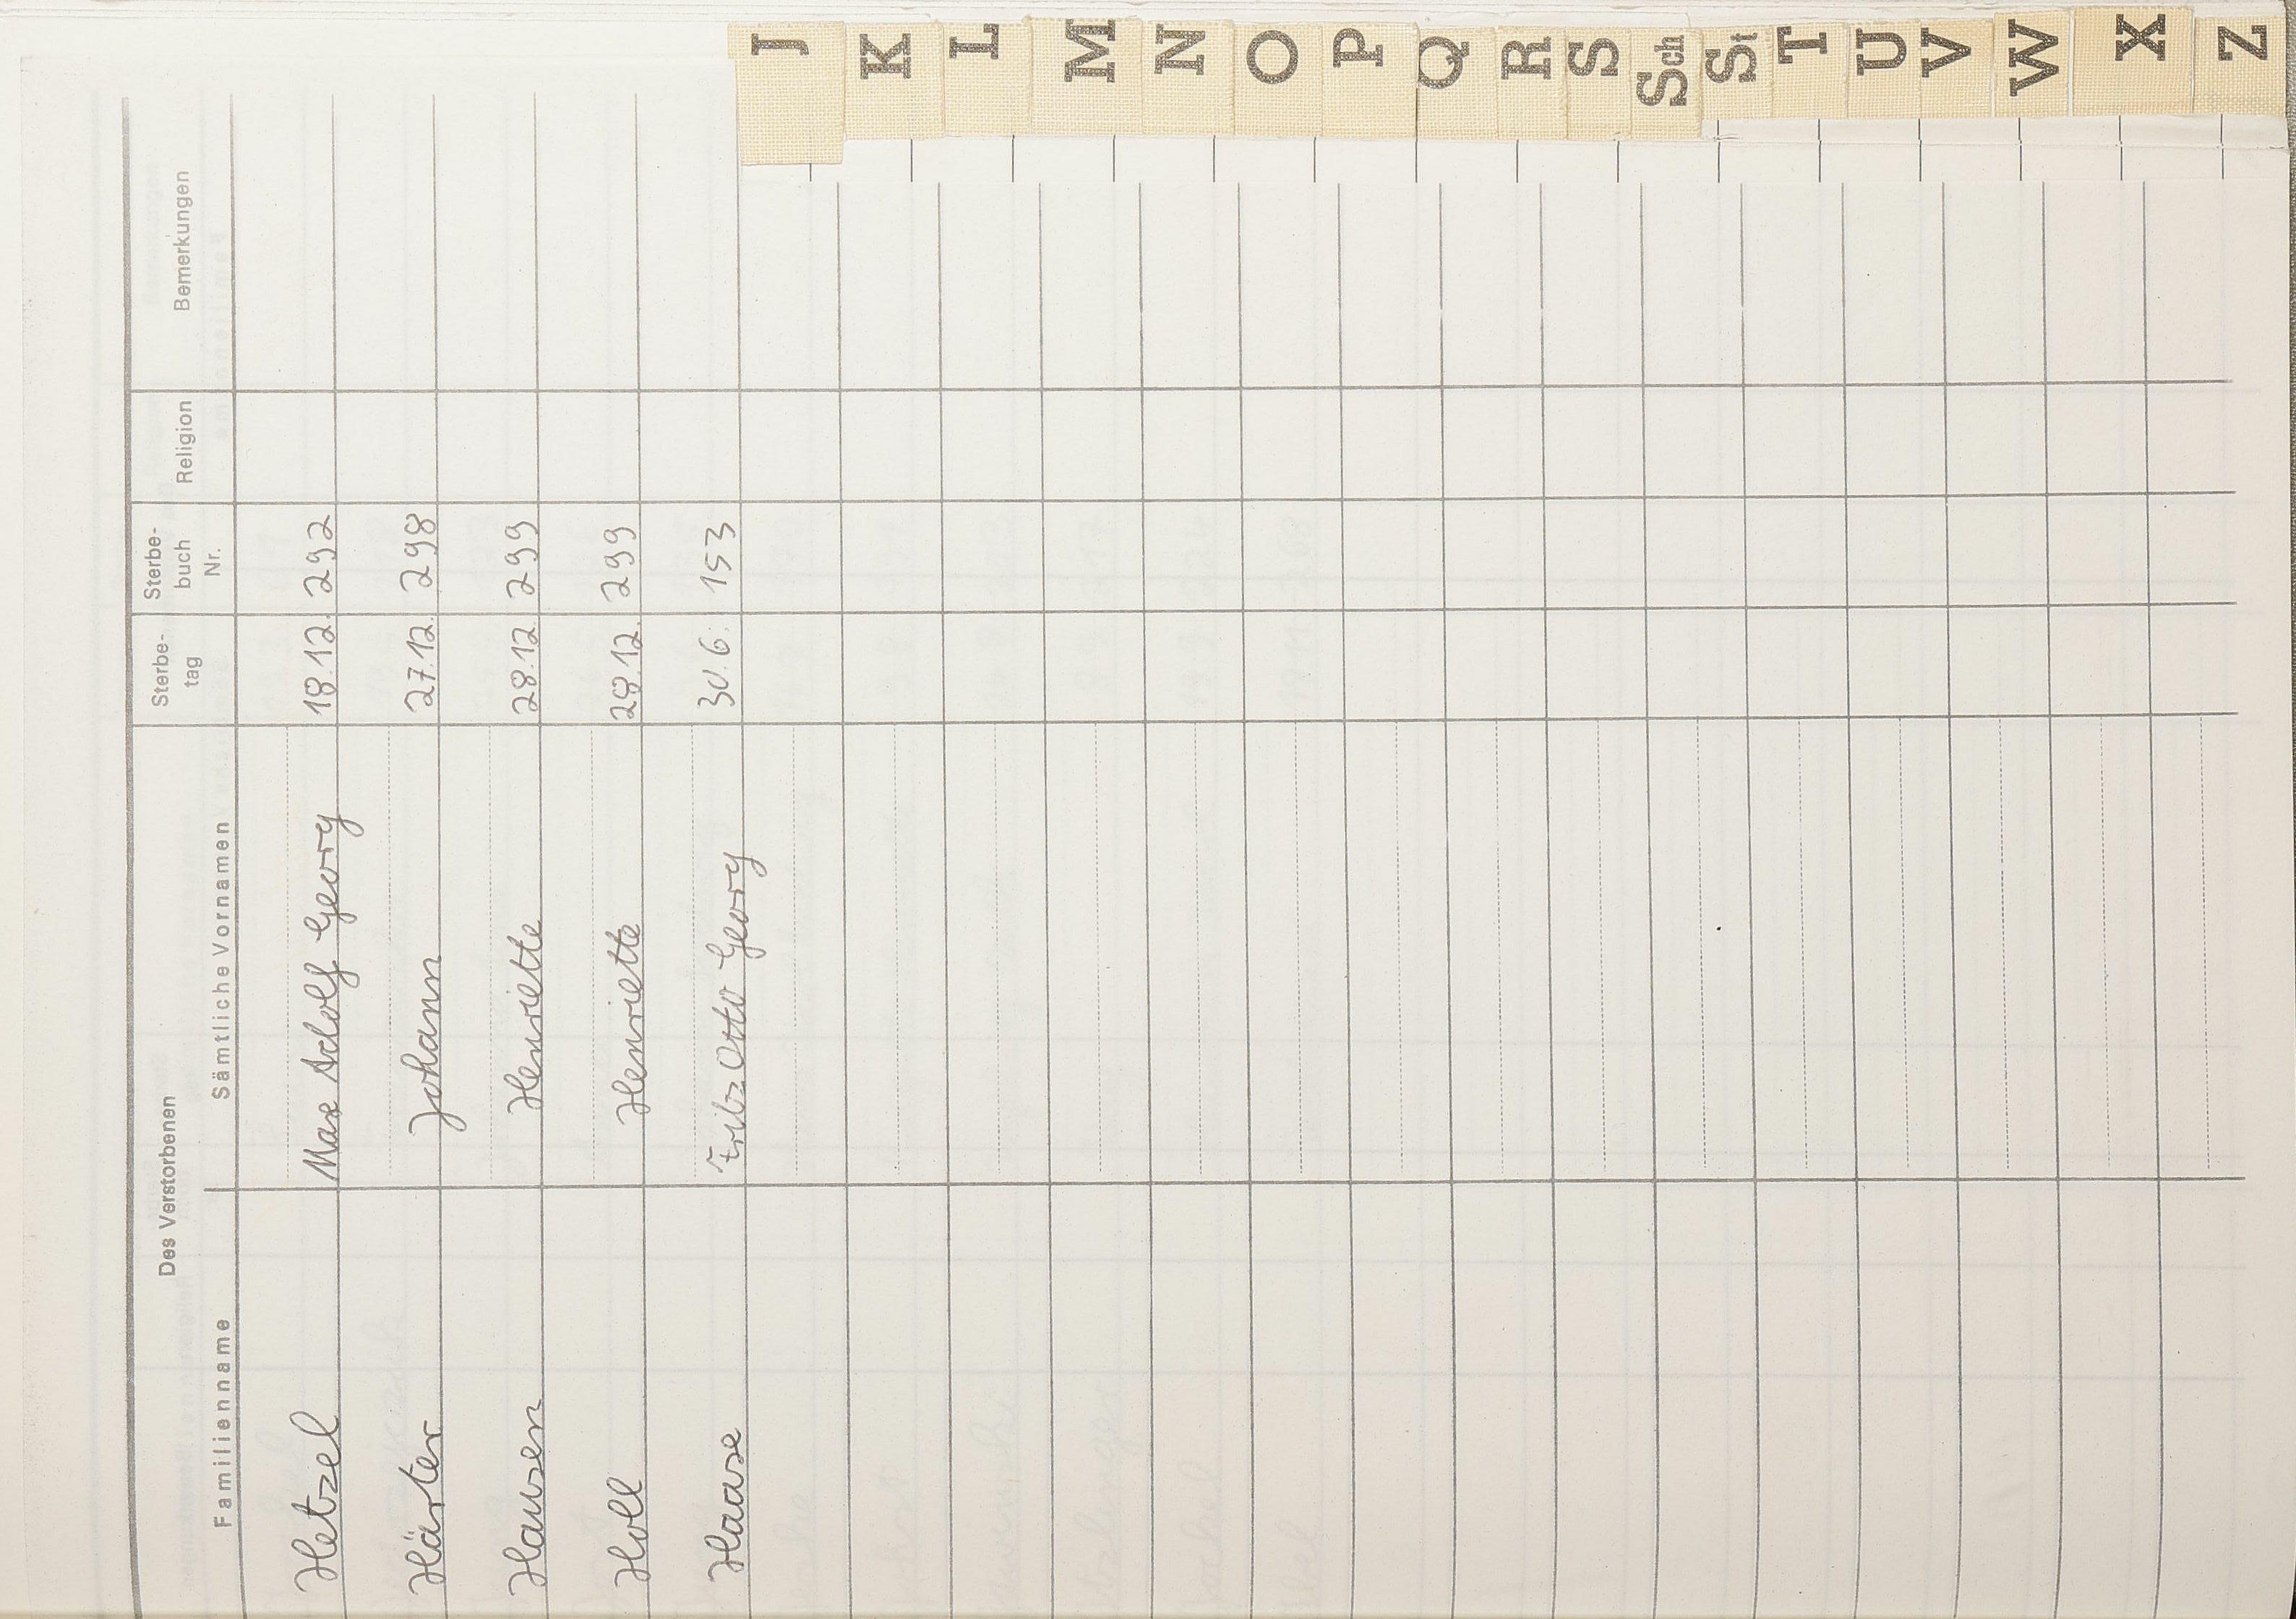 Des Verstorbenen
Familienname Sämtliche Vornamen Sterbe- tag Sterbe- buch Nr. Religion Bemerkungen
Hetzel Max Adolf Georg 18.12. 292
Härter Johann 27.12. 298
Hausen Henriette 28.12 299
Holl Henriette 28.12. 299
Haase Otto Georg 30.6. 153
J
K
L
M
N
O
P
Q
R
S
Sch
St
T
U
V
W
X
Z